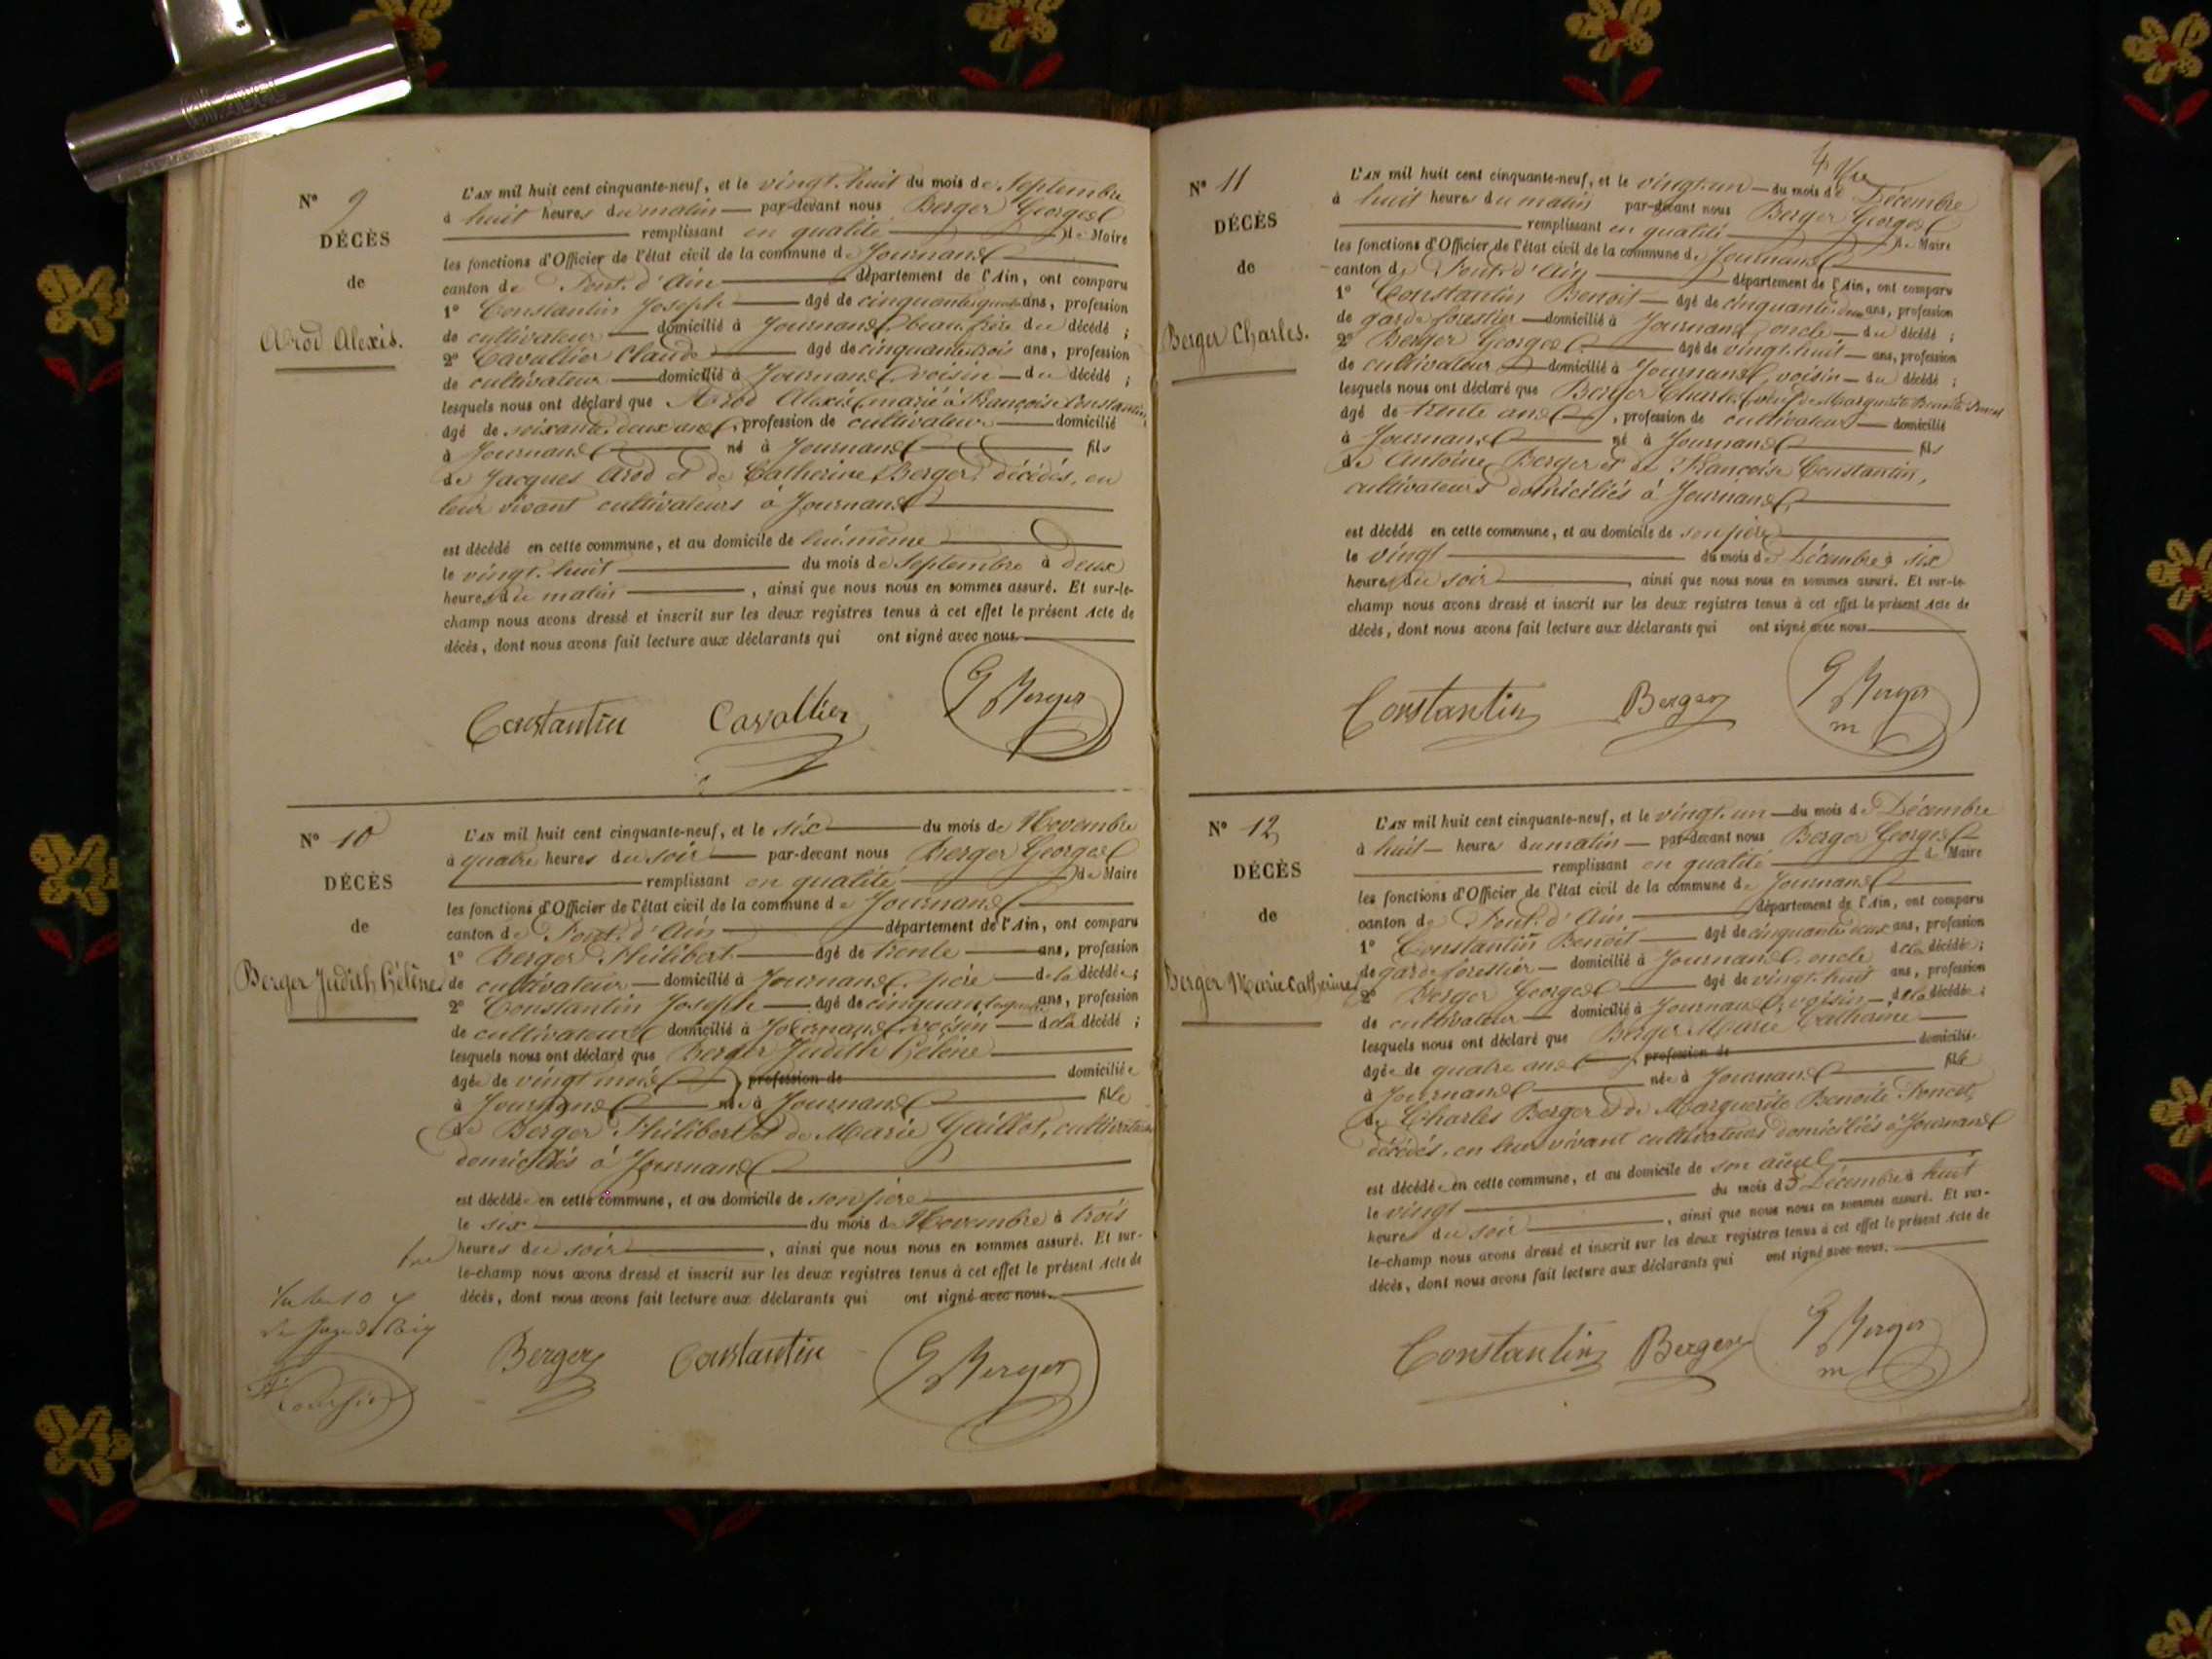 N° 9
DÉCÈS
de
Arod Alexis.
L'AN mil huit cent cinquante-neuf, et le vingt-huit du mois de Septembre
à huit heures du matin par-devant nous Berger Georges
remplissant en qualité de Maire
les fonctions d'Officier de l'état civil de la commune de Journans
canton de Pont-d'Ain département de l'Ain, ont comparu
1° Constantin Joseph âgé de cinquante-quatre ans, profession
de cultivateur domicilié à Journans, beau-frère du décédé ;
2° Cavallier Claude âgé de cinquante-trois ans, profession
de cultivateur domicilié à Journans, voisin du décédé ;
lesquels nous ont déclaré que Arod Alexis, marié à Françoise Constantin,
âgé de soixante-deux ans, profession de cultivateur domicilié
à Journans né à Journans fils
de Jacques Arod et de Catherine Berger, décédés, en
leur vivant cultivateurs à Journans
est décédé en cette commune, et au domicile de lui-même
le vingt-huit du mois de Septembre à deux
heures du matin, ainsi que nous nous en sommes assuré. Et sur-le-
champ nous avons dressé et inscrit sur les deux registres tenus à cet effet le présent Acte de
décès, dont nous avons fait lecture aux déclarants qui ont signé avec nous.
Constantin Cavallier G Berger
N° 10
DÉCÈS
de
Berger Judith Hélène
L'AN mil huit cent cinquante-neuf, et le six du mois de Novembre
à quatre heures du soir par-devant nous Berger Georges
remplissant en qualité de Maire
les fonctions d'Officier de l'état civil de la commune de Journans
canton de Pont-d'Ain département de l'Ain, ont comparu
1° Berger Philibert âgé de trente ans, profession
de cultivateur domicilié à Journans, père de la décédée ;
2° Constantin Joseph âgé de cinquante-quatre ans, profession
de cultivateur domicilié à Journans, voisin de la décédé ;
lesquels nous ont déclaré que Berger Judith Hélène
âgée de vingt mois, profession de domiciliée
à Journans née à Journans fille
de Berger Philibert et de Marie Gaillot, cultivateurs
domiciliés à Journans
est décédée en cette commune, et au domicile de son père
le six du mois de Novembre à trois
heures du soir, ainsi que nous nous en sommes assuré. Et sur-
le-champ nous avons dressé et inscrit sur les deux registres tenus à cet effet le présent Acte de
décès, dont nous avons fait lecture aux déclarants qui ont signé avec nous.
Berger Constantin G Berger
N° 11
DÉCÈS
de
Berger Charles.
L'AN mil huit cent cinquante-neuf, et le vingt-un du mois de Décembre
à huit heures du matin par-devant nous Berger Georges
remplissant en qualité de Maire
les fonctions d'Officier de l'état civil de la commune de Journans
canton de Pont-d'Ain département de l'Ain, ont comparu
1° Constantin Benoit âgé de cinquante-deux ans, profession
de garde forestier domicilié à Journans, oncle du décédé ;
2° Berger Georges âgé de vingt-huit ans, profession
de cultivateur domicilié à Journans, voisin du décédé ;
lesquels nous ont déclaré que Berger Charles, veuf de Marguerite Benoite Poncet
âgé de trente ans, profession de cultivateur domicilié
à Journans né à Journans fils
de Antoine Berger et de Françoise Constantin,
cultivateurs domiciliés à Journans
est décédé en cette commune, et au domicile de son père
le vingt du mois de Décembre à six
heures du soir, ainsi que nous nous en sommes assuré. Et sur-le-
champ nous avons dressé et inscrit sur les deux registres tenus à cet effet le présent Acte de
décès, dont nous avons fait lecture aux déclarants qui ont signé avec nous
Constantin Berger G Berger
m
N° 12
DÉCÈS
de
Berger Marie Catherine
L'AN mil huit cent cinquante-neuf, et le vingt-un du mois de Décembre
à huit heures du matin par-devant nous Berger Georges
remplissant en qualité de Maire
les fonctions d'Officier de l'état civil de la commune de Journans
canton de Pont-d'Ain département de l'Ain, ont comparu
1° Constantin Benoit âgé de cinquante-deux ans, profession
de garde forestier domicilié à Journans, oncle de la décédée ;
2° Berger Georges âgé de vingt-huit ans, profession
de cultivateur domicilié à Journans, voisin de la décédée ;
lesquels nous ont déclaré que Berger Marie Catherine
âgée de quatre ans, profession de domiciliée
à Journans née à Journans fille
de Charles Berger et de Marguerite Benoite Poncet,
décédés, en leur vivant cultivateurs domiciliés à Journans
est décédée en cette commune, et au domicile de son aïeul
le vingt du mois de Décembre à huit
heures du soir, ainsi que nous nous en sommes assuré. Et sur-
le-champ nous avons dressé et inscrit sur les deux registres tenus à cet effet le présent Acte de
décès, dont nous avons fait lecture aux déclarants qui ont signé avec nous.
Constantin Berger G Berger
m